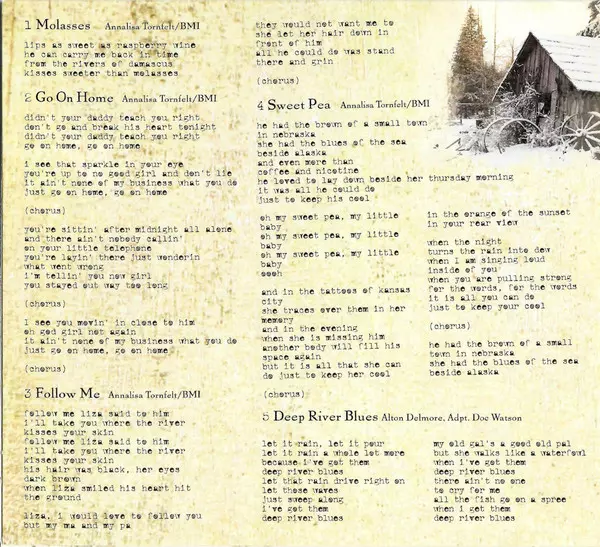 1 Molasses Annalisa Tornfelt/BMI
lips as sweet as raspberry wine
he can carry me back in time
from the rivers of damascus
kisses sweeter than molasses
2 Go On Home Annalisa Tornfelt/BMI
didn't your daddy teach you right
don't go and break his heart tonight
didn't your daddy teach you right
go on home, go on home
i see that sparkle in your eye
you're up to no good girl and don't lie
it ain't none of my business what you do
just go on home, go on home
(chorus)
you're sittin' after midnight all alone
and there ain't nobody callin'
on your little telephone
you're layin' there just wonderin
what went wrong
i'm tellin' you now girl
you stayed out way too long
(chorus)
I see you movin' in close to him
oh god girl not again
it ain't none of my business what you do
just go on home, go on home
(chorus)
3 Follow Me Annalisa Tornfelt/BMI
follow me liza said to him
i'll take you where the river
kisses your skin
follow me liza said to him
i'll take you where the river
kisses your skin
his hair was black, her eyes
dark brown
when liza smiled his heart hit
the ground
liza, i would love to follow you
but my ma and my pa
they would not want me to
she let her hair down in
front of him
all he could do was stand
there and grin
(chorus)
4 Sweet Pea Annalisa Tornfelt/BMI
he had the brown of a small town
in nebraska
she had the blues of the sea
beside alaska
and even more than
coffee and nicotine
he loved to lay down beside her thursday morning
it was all he could do
just to keep his cool
oh my sweet pea, my little
baby
oh my sweet pea, my little
baby
oh my sweet pea, my little
baby
oooh
and in the tattoos of kansas
city
she traces over them in her
memory
and in the evening
when she is missing him
another body will fill his
space again
but it is all that she can
do just to keep her cool
(chorus)
in the orange of the sunset
in your rear view
when the night
turns the rain into dew
when I am singing loud
inside of you
when you are pulling strong
for the words, for the words
it is all you can do
just to keep your cool
(chorus)
he had the brown of a small
town in nebraska
she had the blues of the sea
beside alaska
5 Deep River Blues Alton Delmore, Adpt. Doc Watson
let it rain, let it pour
let it rain a whole lot more
because i've got them
deep river blues
let that rain drive right on
let those waves
just sweep along
i've got them
deep river blues
my old gal's a good old pal
but she walks like a waterfowl
when i've got them
deep river blues
there ain't no one
to cry for me
all the fish go on a spree
when i get them
deep river blues